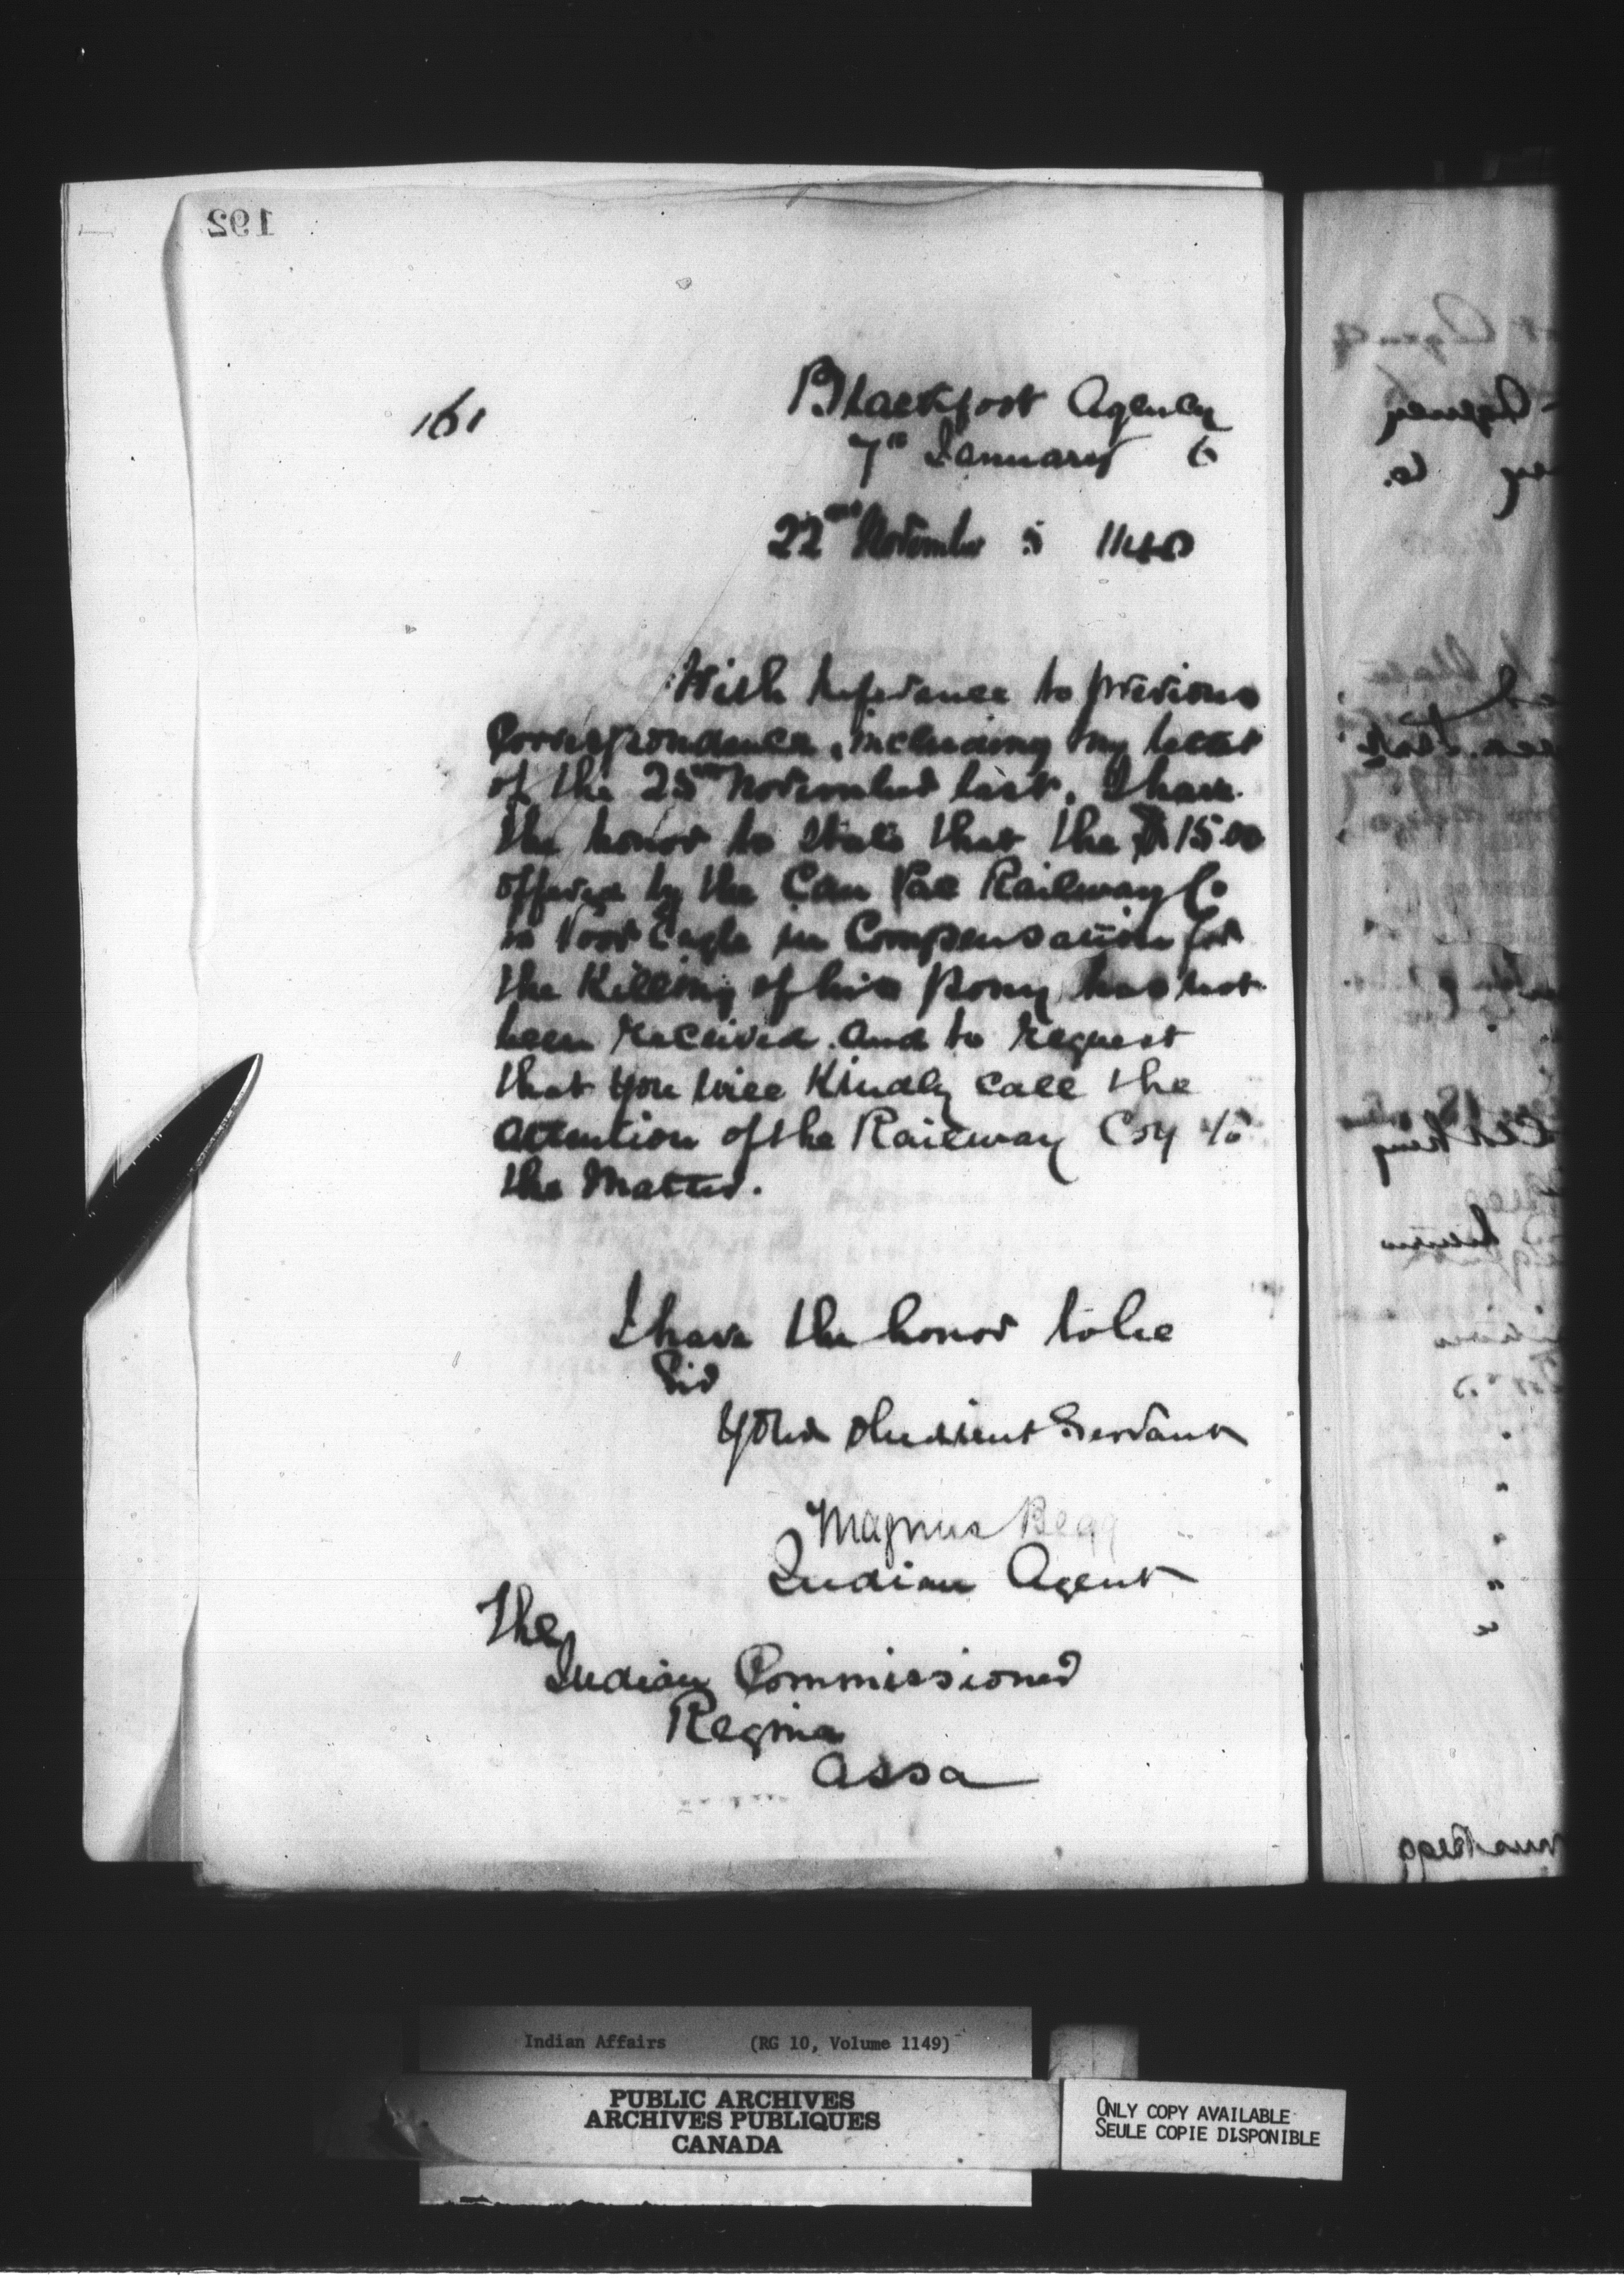 192
161
Blackfoot Agency
7th January 6
22nd November 5 1140
With reference to previous
Correspondence, including my letter
of the 25th November last, I have
the honor to state that the $15.00
offered by the Can Pac Railway Co
to Poor Eagle in Compensation for
the Killing of his Pony has not
been received. and to request
that you will Kindly call the
attention of the Railway Coy to
the Matter.
I have the honor to be
Sir
Your obedient Servant
Magnus Begg
Indian Agent
The
Indian Commissioner
Regina
Assa
Indian Affairs (RG 10, Volume 1149)
PUBLIC ARCHIVES
ARCHIVES PUBLIQUES
CANADA
ONLY COPY AVAILABLE
SEULE COPIE DISPONIBLE